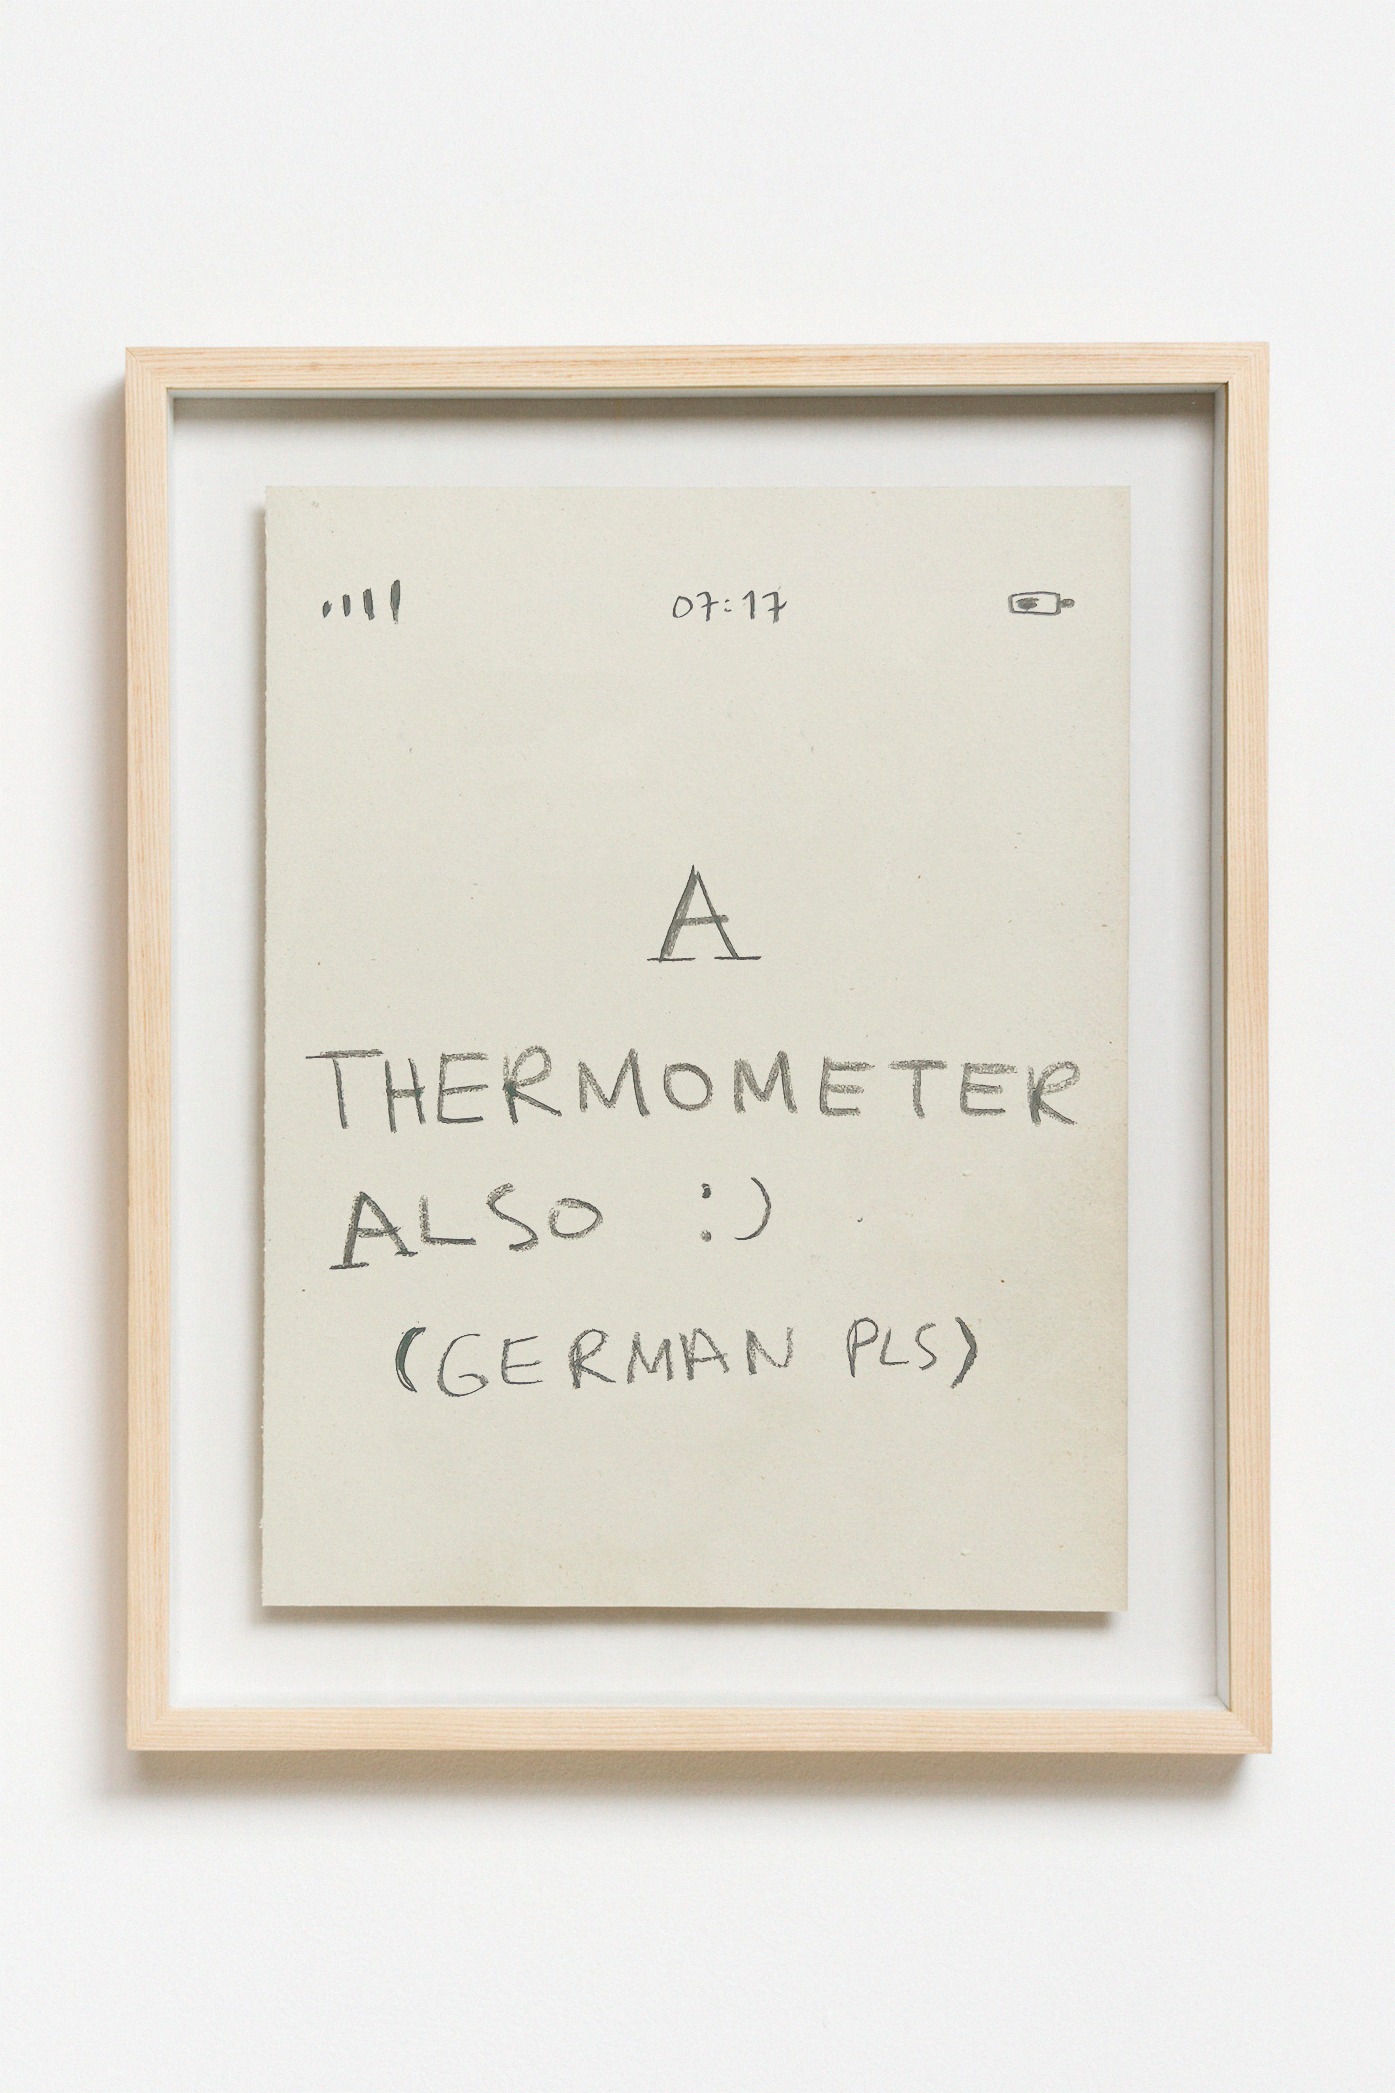 07:17
A
THERMOMETER
ALSO :)
(GERMAN PLS)